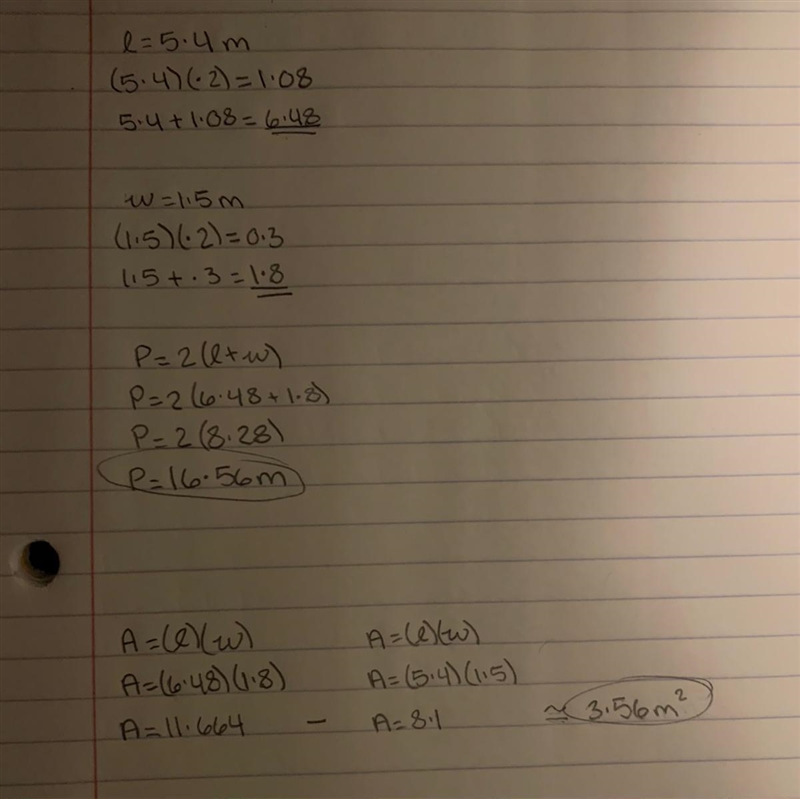 l = 5.4 m
(5.4)(.2) = 1.08
5.4 + 1.08 = 6.48
w = 1.5 m
(1.5)(.2) = 0.3
1.5 + .3 = 1.8
P = 2(l + w)
P = 2(6.48 + 1.8)
P = 2(8.28)
P = 16.56m
A = (l)(w) A = (l)(w)
A = (6.48)(1.8) A = (5.4)(1.5)
A = 11.664 - A = 8.1 ≃ 3.56m²